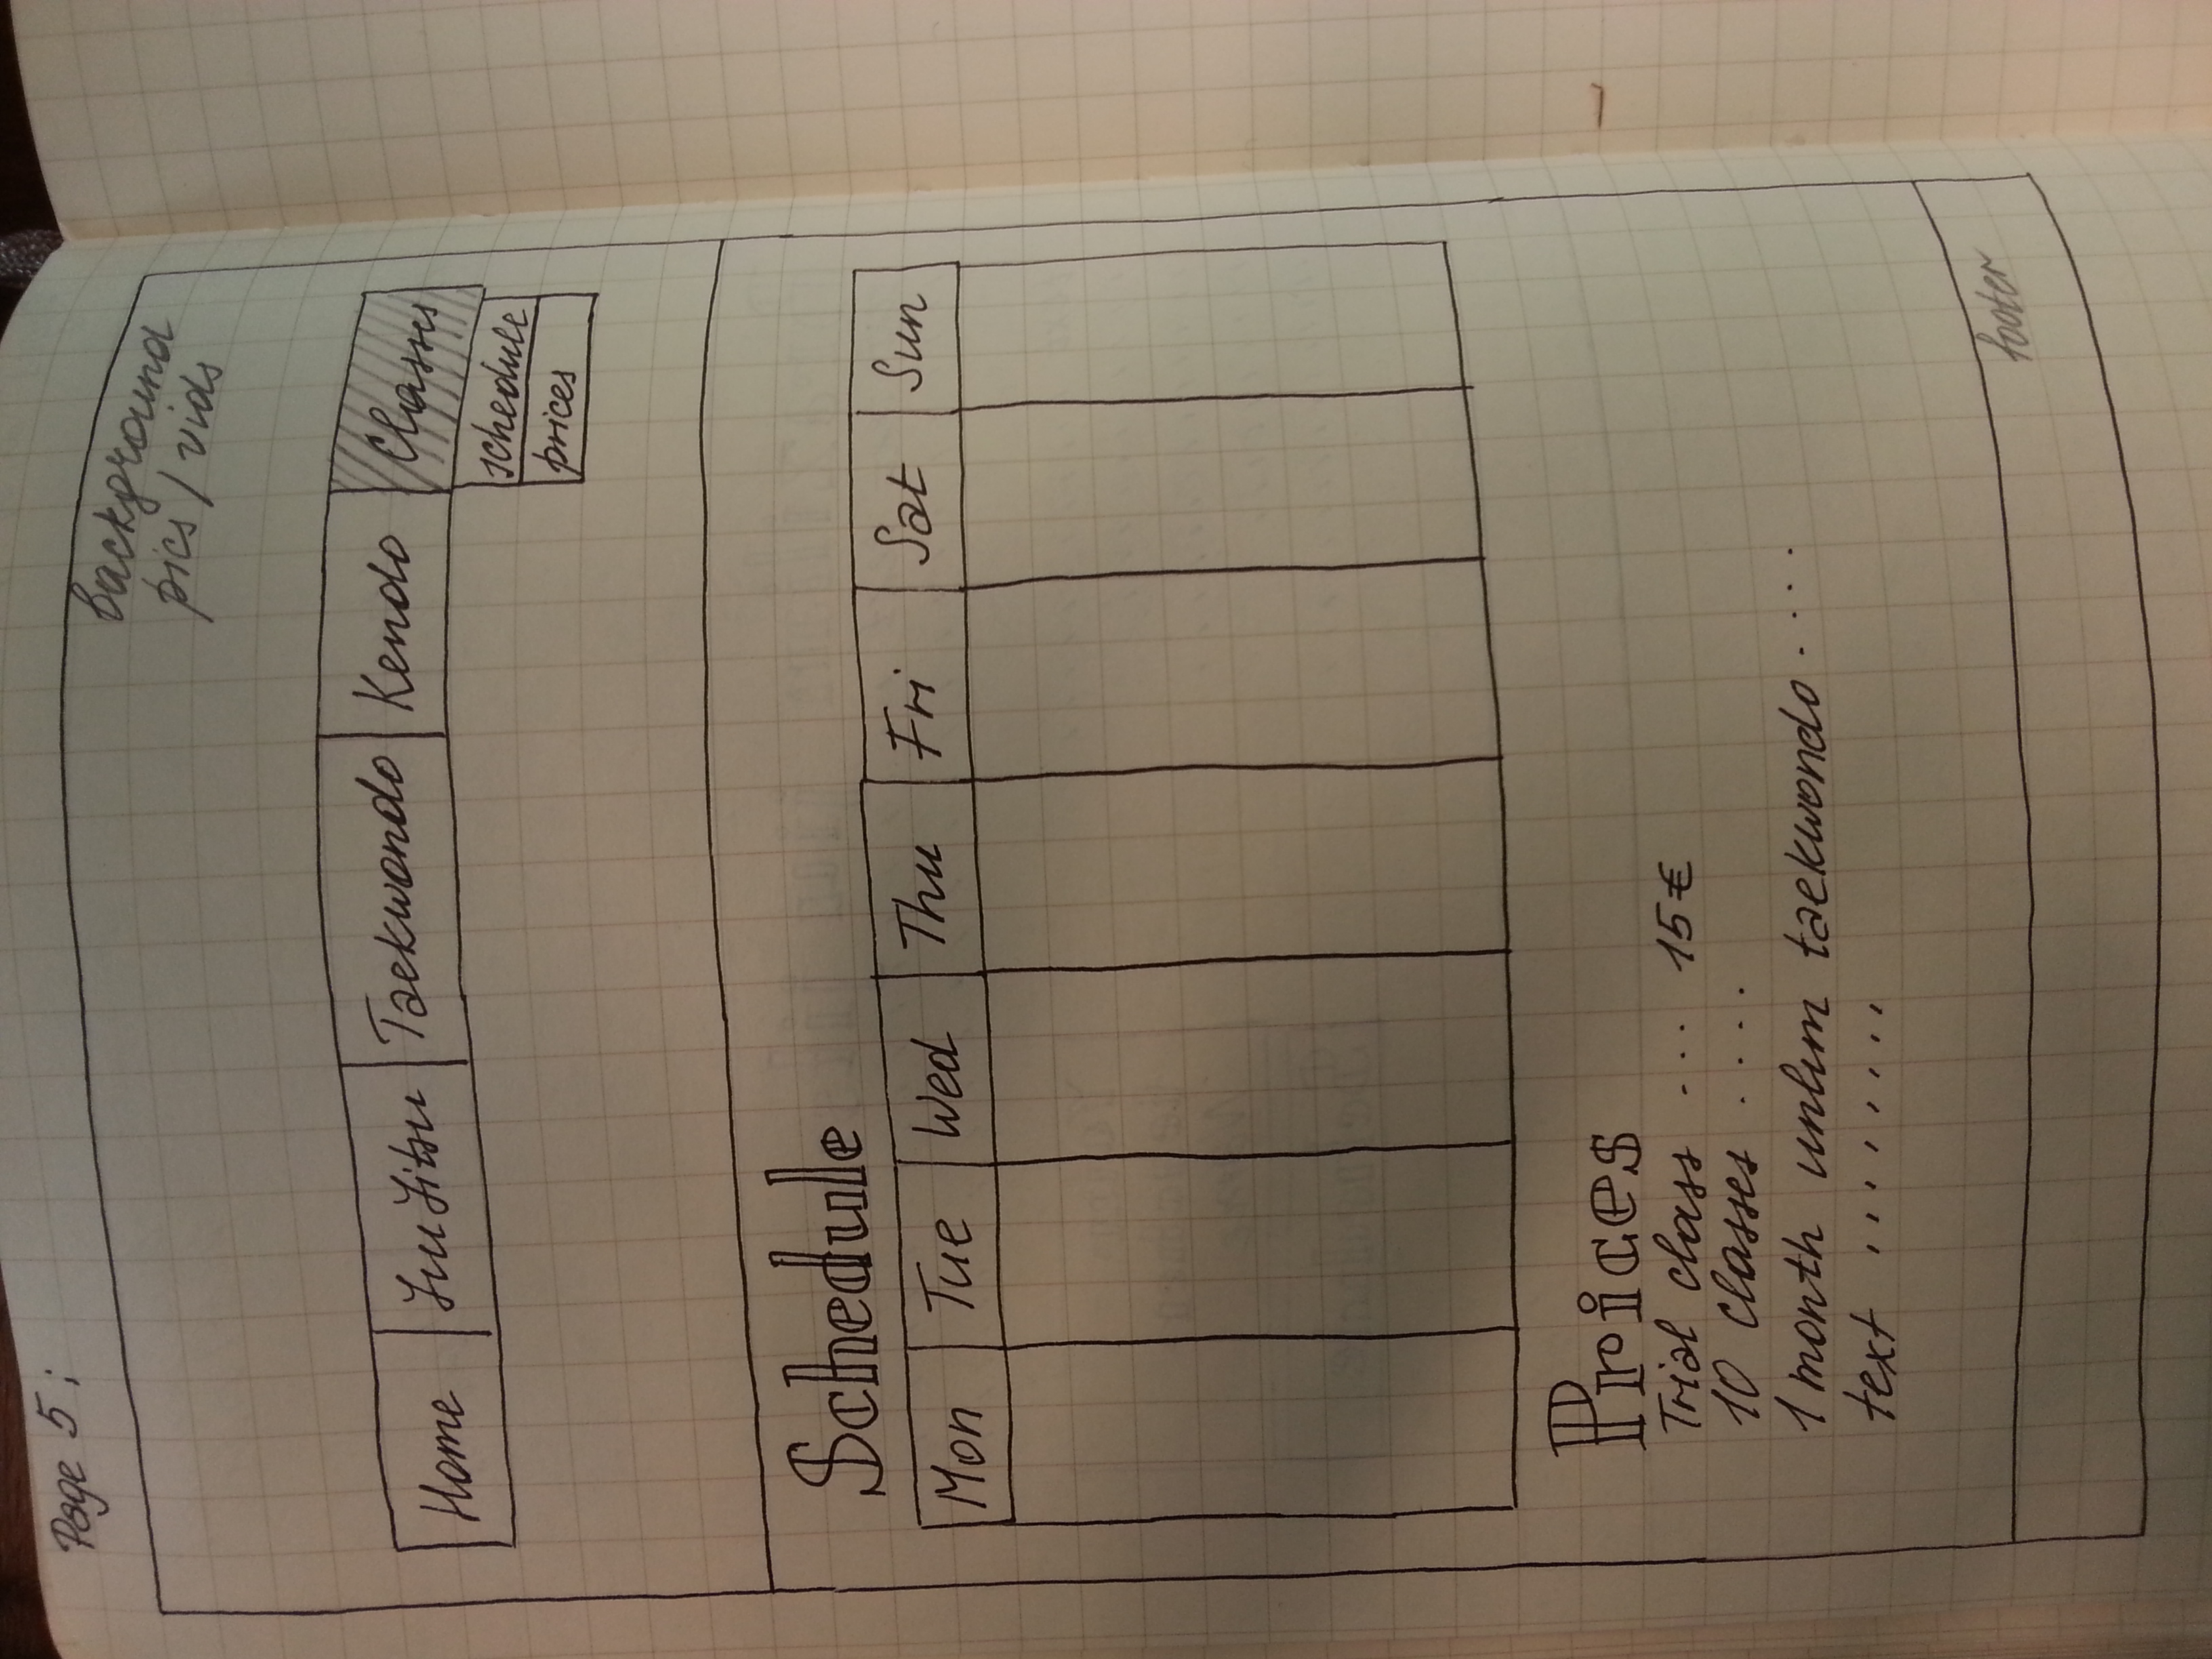 Page 5;
background
pics / vids
Home JiuJitsu Taekwondo Kendo Classes
schedule
prices
Schedule
Mon Tue Wed Thu Fri Sat Sun
Prices
Trial class ... 15€
10 classes ....
1 month unlim taekwondo ....
text ........
footer